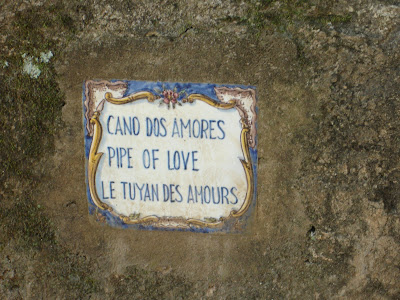 CANO DOS AMORES
PIPE OF LOVE
LE TUYAN DES AMOURS